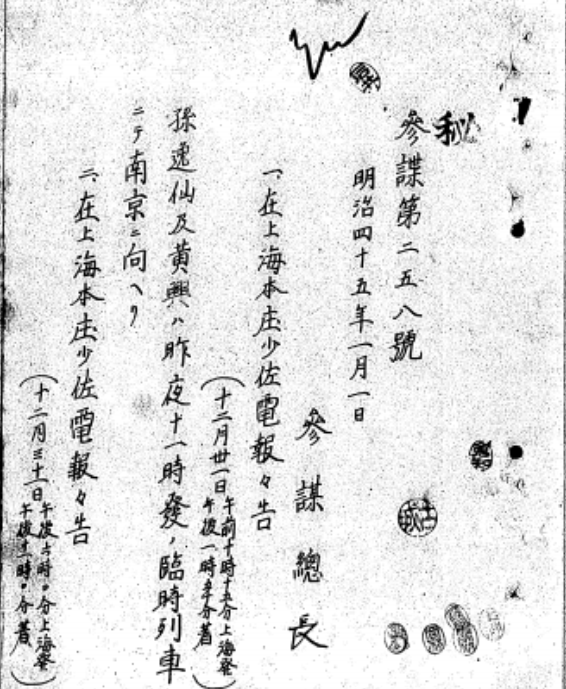 秘
參謀第二五八號
明治四十五年一月一日
參謀總長
一、在上海本庄少佐電報々告
(十二月卅一日午前十時十五分上海發
午後一時 分着)
孫逸仙及黄興ハ昨夜十一時發ノ臨時列車
ニテ南京ニ向ヘリ
二、在上海本庄少佐電報々告
(十二月三十一日午後六時〇分上海發
午後十一時〇分着)